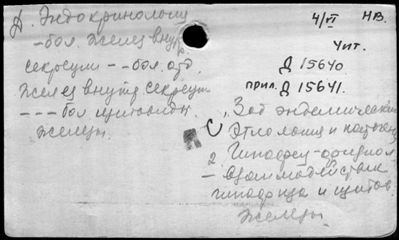 Эндокринология
4/VI НВ.
– бол. желез внутр
секреции – – бол. отд.
желез внутр секрец
– – – бол щитовидн
железы.
Чит.
Д 15640
прил. Д 15641.
1. Зоб эндемический
Этиология и
2. Гипофиз
– взаимодействие
гипофиза и щитов
железы